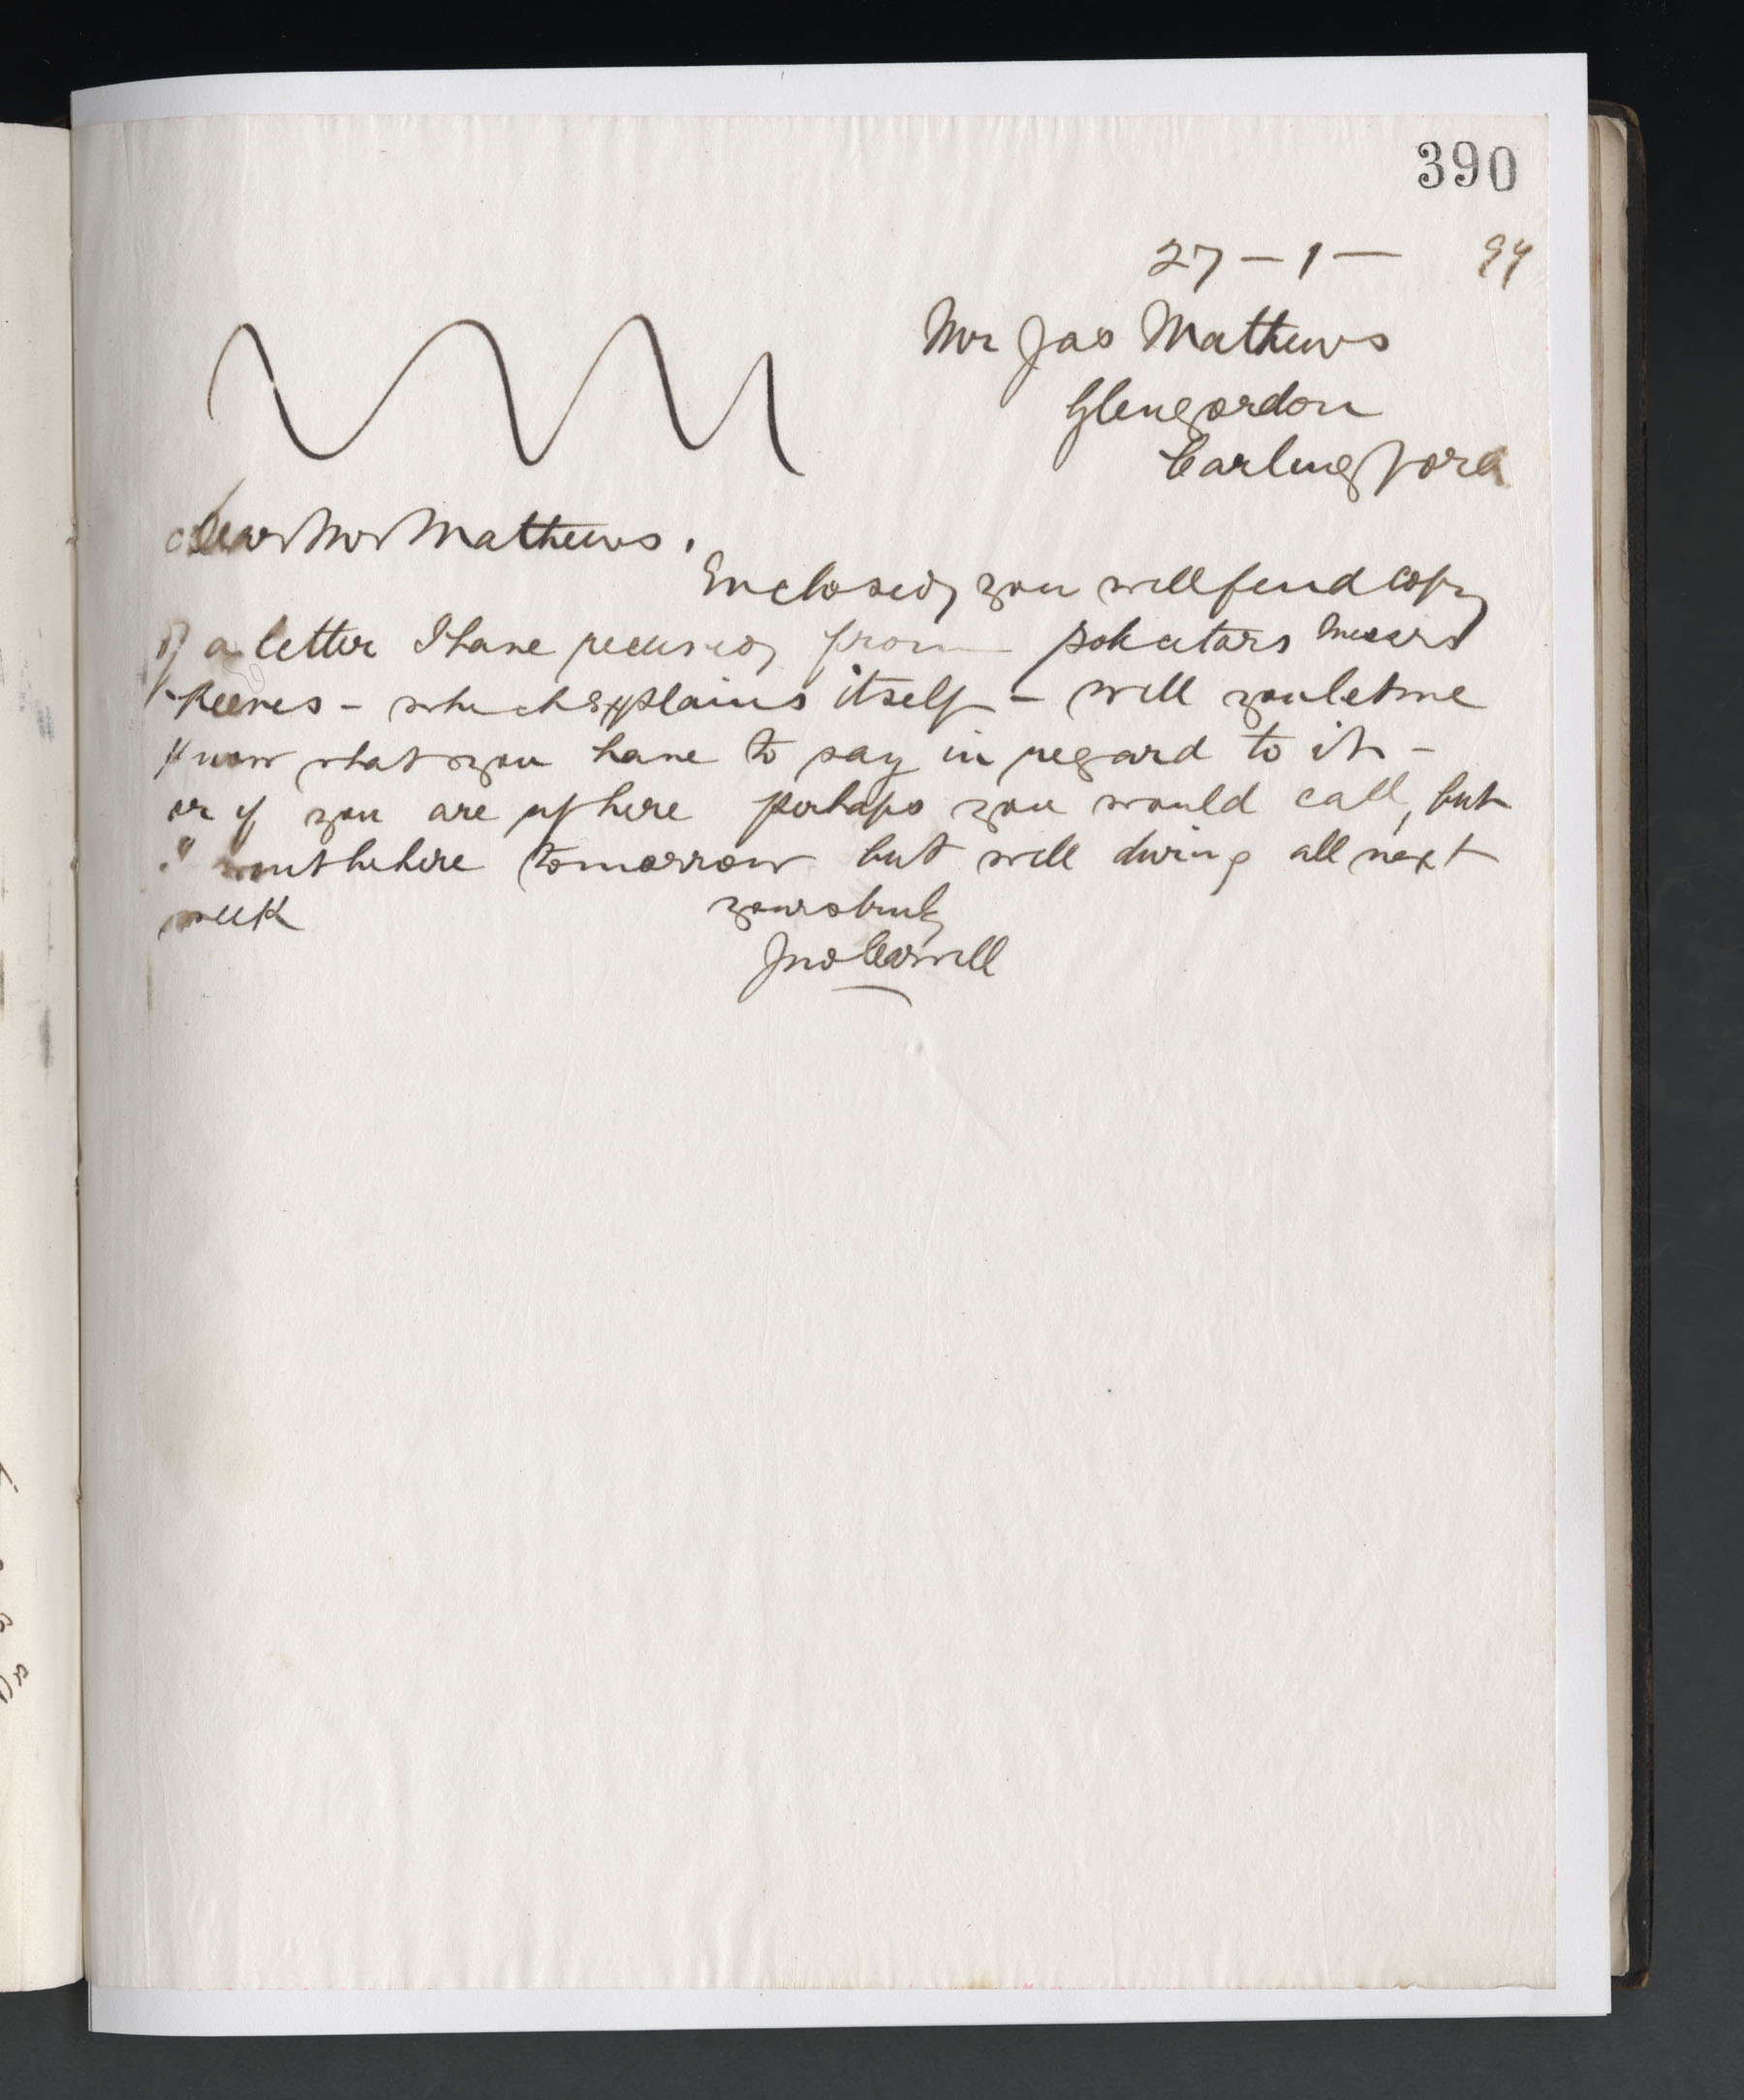 390
27 - 1 - 99
Mr Jas Mathews
Glengordon
Carlingford
Dear Mr Mathews.
Enclosed you will find copy
of a letter I have received from solicitors Messrs
Reeves - which explains itself - will you let me
know what you have to say in regard to it -
or if you are up here perhaps you would call, but
I wont be here tomorrow but will during all next
week
yours truly
Jno